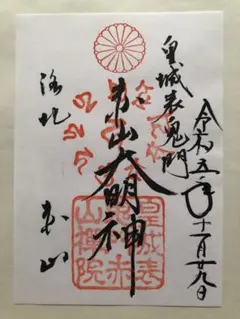 令和五年十一月廿九日
皇城表鬼門
赤山大明神
洛北
赤山
皇城表
鬼門赤
山禪院